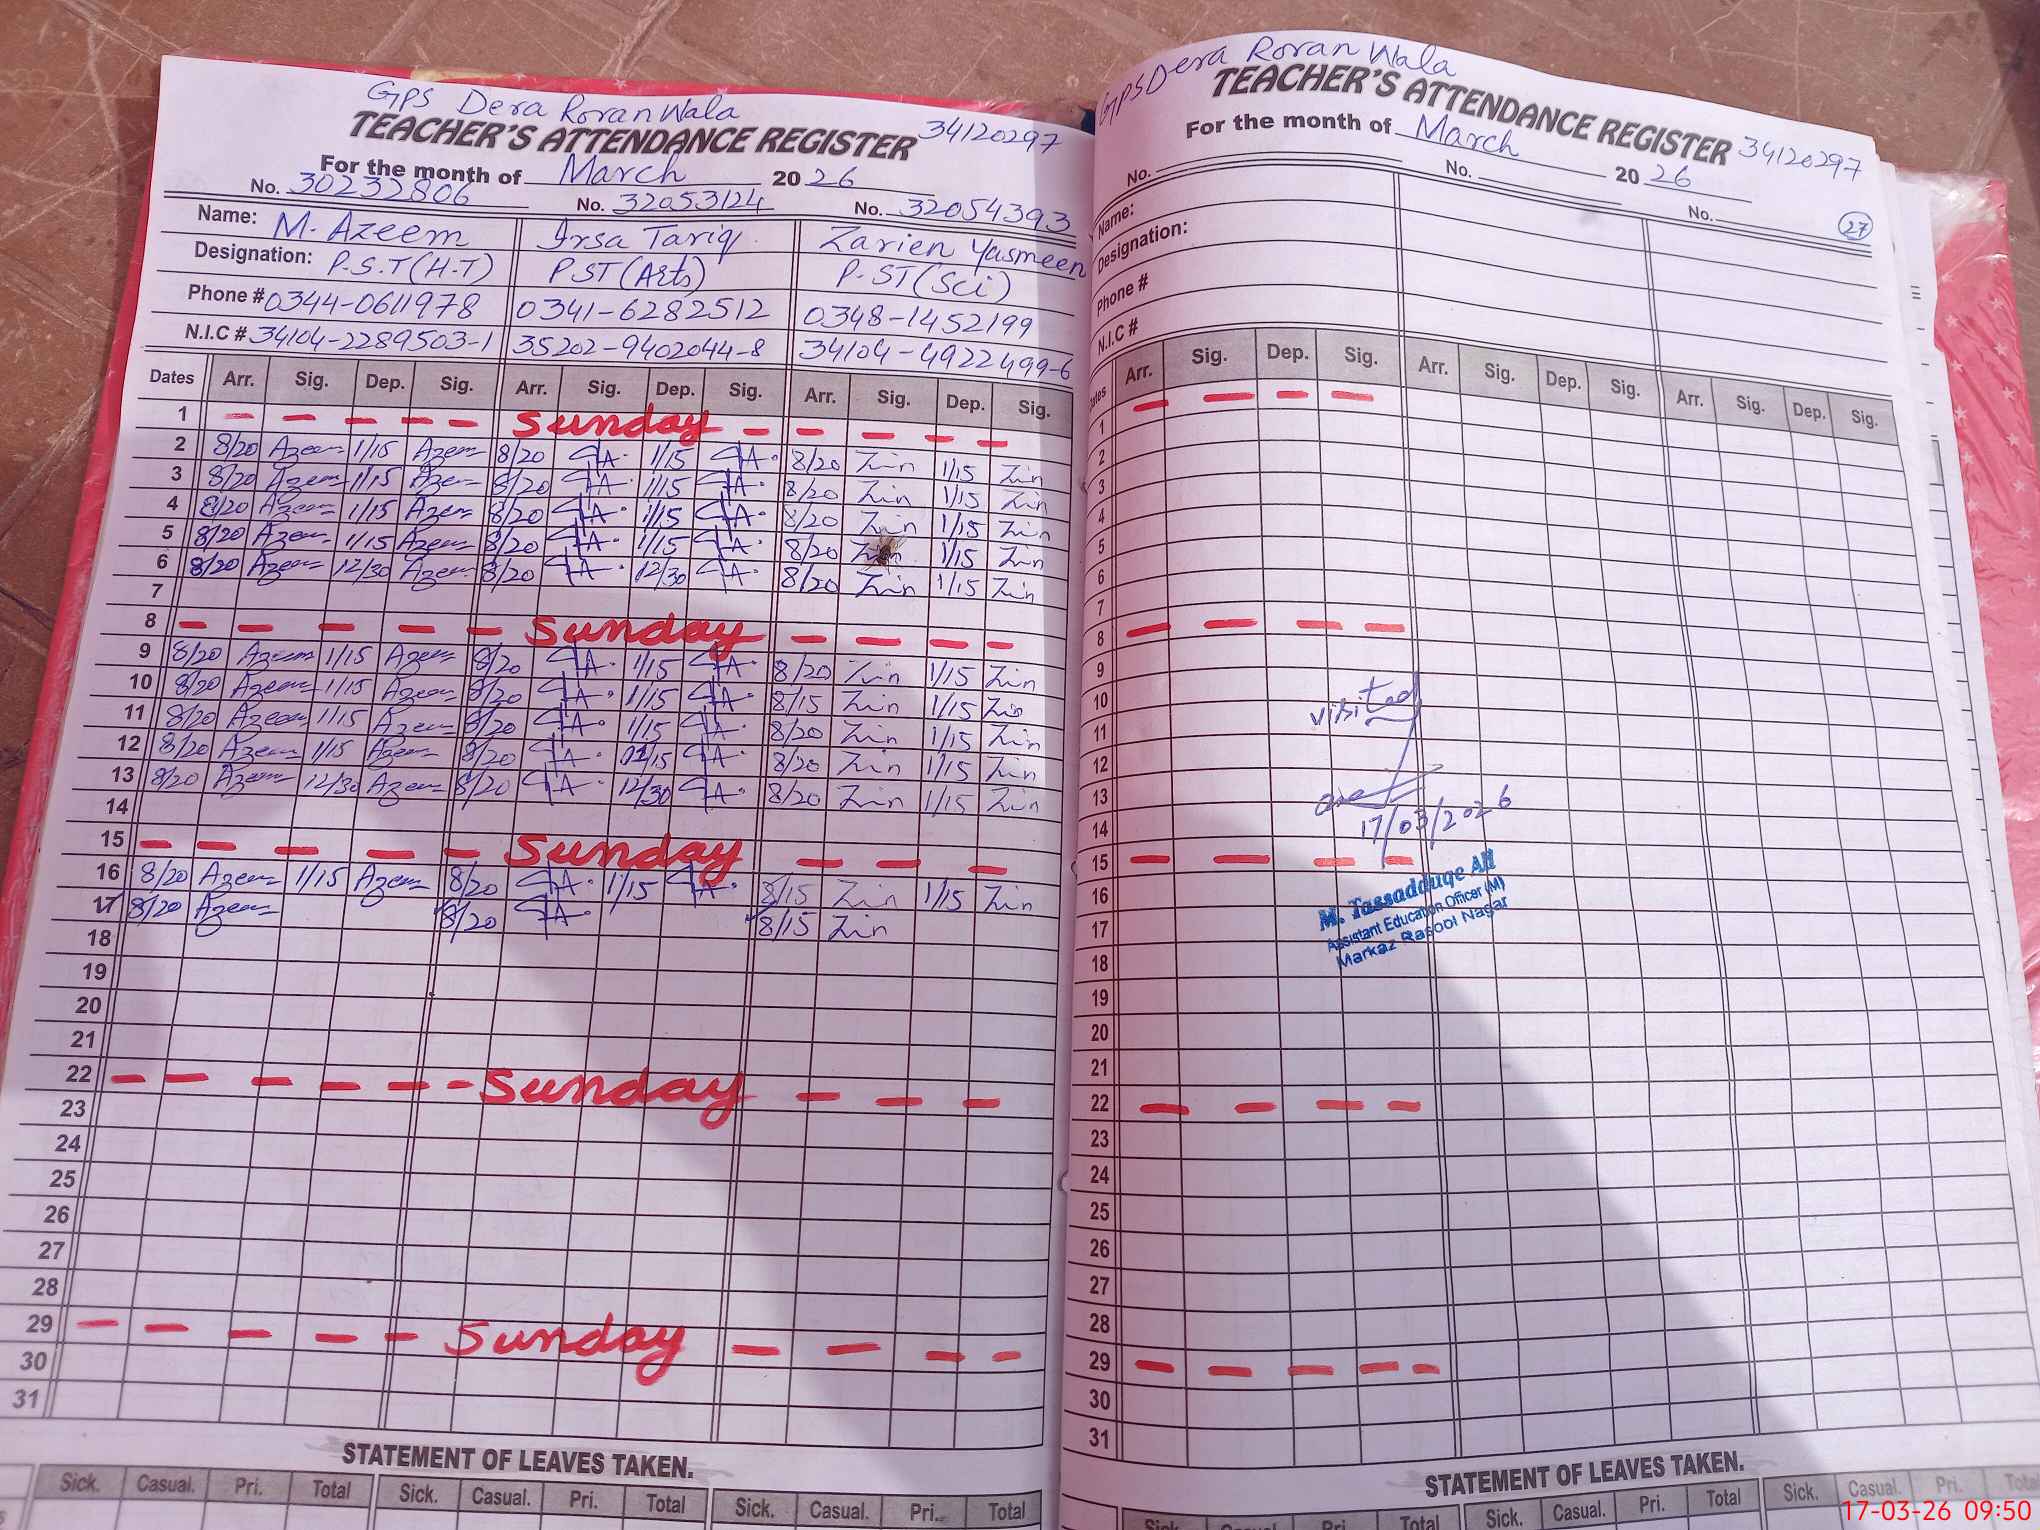 GPS Dera Roran Wala
TEACHER'S ATTENDANCE REGISTER 34120297
For the month of March 2026
No. 30232806 No. 32053124 No. 32054393
Name: M. Azeem Irsa Tariq. Zarien Yasmeen
Designation: P.S.T (H.T) PST (Arts) P-ST (Sci)
Phone # 0344-0611978 0341-6282512 0348-1452199
N.I.C # 34104-2289503-1 35202-9402044-8 34104-4922499-6
Dates Arr. Sig. Dep. Sig. Arr. Sig. Dep. Sig. Arr. Sig. Dep. Sig.
1 Sunday
2 8/20 Azeem 1/15 Azeem 8/20 1/15 8/20 1/15
3 8/20 Azeem 1/15 Azeem 8/20 1/15 8/20 1/15
4 8/20 Azeem 1/15 Azeem 8/20 1/15 8/20 1/15
5 8/20 Azeem 1/15 Azeem 8/20 1/15 8/20 1/15
6 8/20 Azeem 12/30 Azeem 8/20 12/30 8/20 1/15
7
8 Sunday
9 8/20 Azeem 1/15 Azeem 8/20 1/15 8/20 1/15
10 8/20 Azeem 1/15 Azeem 8/20 1/15 8/15 1/15
11 8/20 Azeem 1/15 Azeem 8/20 1/15 8/20 1/15
12 8/20 Azeem 1/15 Azeem 8/20 8/20 1/15
13 8/20 Azeem 12/30 Azeem 8/20 12/30 8/20 1/15
14
15 Sunday
16 8/20 Azeem 1/15 Azeem 8/20 1/15 8/15 1/15
17 8/20 Azeem 8/20 8/15
18
19
20
21
22 Sunday
23
24
25
26
27
28
29 Sunday
30
31
STATEMENT OF LEAVES TAKEN.
Sick. Casual. Pri. Total Sick. Casual. Pri. Total Sick. Casual. Pri. Total
GPS Dera Roran Wala
TEACHER'S ATTENDANCE REGISTER 34120297
For the month of March 2026
No. No. No.
27
Name:
Designation:
Phone #
N.I.C #
Dates Arr. Sig. Dep. Sig. Arr. Sig. Dep. Sig. Arr. Sig. Dep. Sig.
1
2
3
4
5
6
7
8
9
10
visited
11
12
13
17/03/2026
14
15
M. Tassadduqe Ali
16
Assistant Education Officer (M)
17
Markaz Rasool Nagar
18
19
20
21
22
23
24
25
26
27
28
29
30
31
STATEMENT OF LEAVES TAKEN.
Sick. Casual. Pri. Total Sick. Casual. Pri. Total Sick. Casual. Pri. Total
17-03-26 09:50